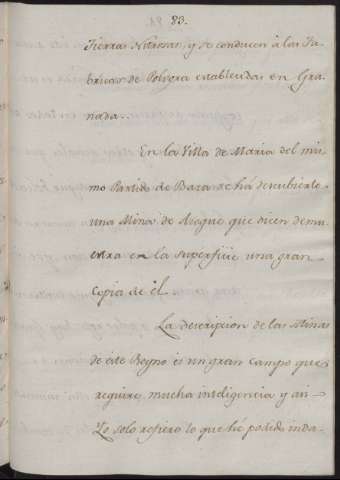 83.
Tierras Nitrosas, y se conducen à las Fa-
bricas de Polvora establecidas en Gra-
nada..
En la Villa de Maria del mis-
mo Partido de Baza se há descubierto
una Mina de Azogue que dicen demu-
estra en la superficie una gran
Copia de èl.
La descripcion de las Minas
de este Reyno es un gran campo que
requiere mucha inteligencia y asi
Yo solo refiero lo que hé podido inda-